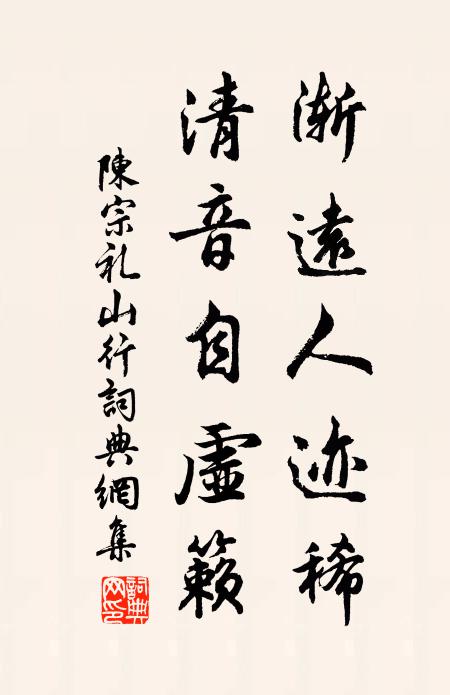 漸遠人迹稀
清音自虛籟
陳宗礼山行詞典網集
詞典网印